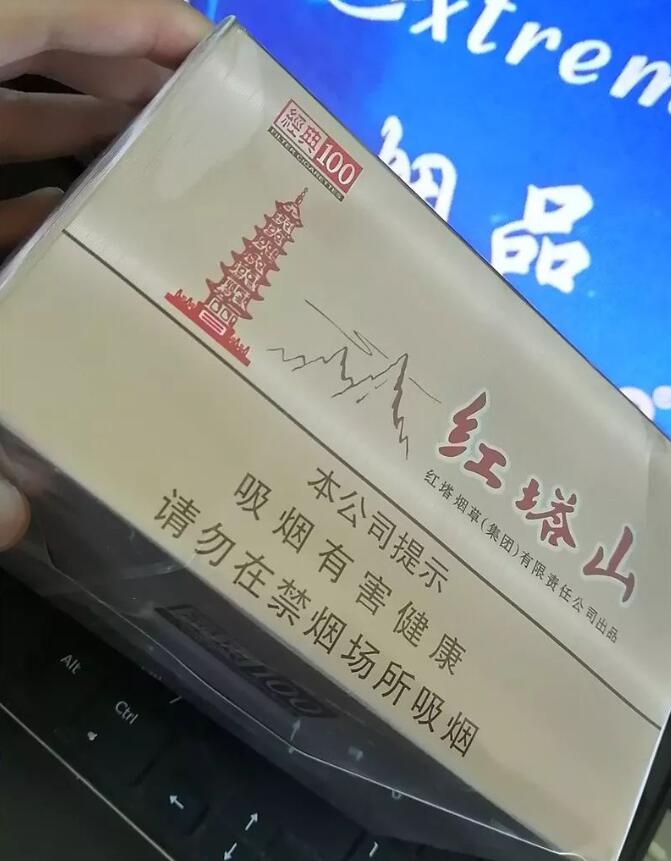 Extrem
品
經典100
FILTER CIGARETTES
红塔山
红塔烟草(集团)有限责任公司出品
本公司提示
吸烟有害健康
请勿在禁烟场所吸烟
100
Alt
Ctrl